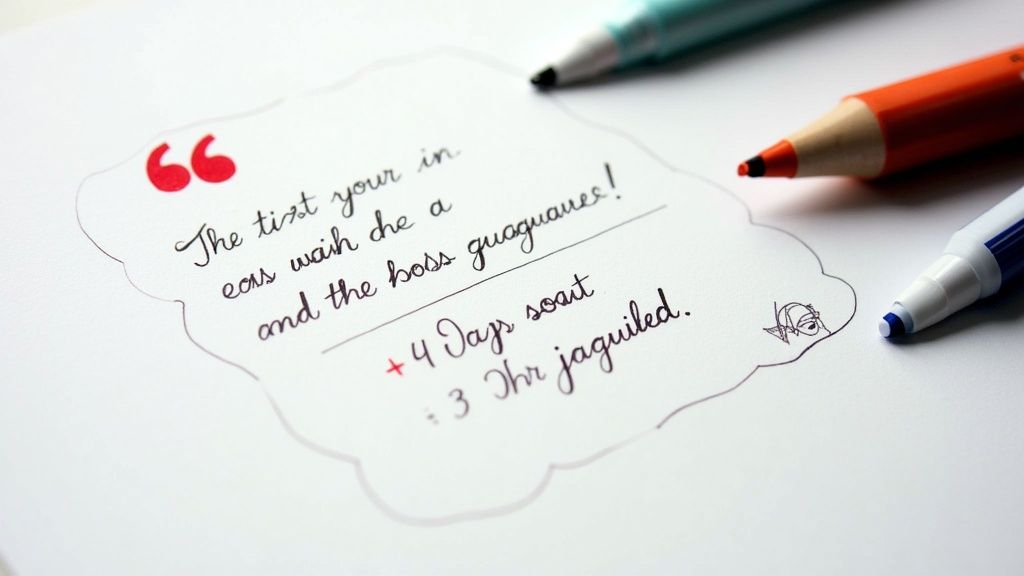 “
The tist your in
eors waih che a
and the boss guaguauee!
+ 4 Days soait
: 3 Ihr jaguiled.